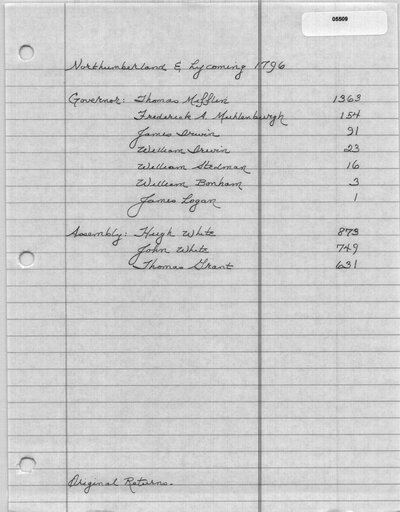 05509
Northumberland & Lycoming 1796
Governor: Thomas Mifflin 1363
Frederick A. Muhlenburgh 154
James Irwin 91
William Irwin 23
William Stedman 16
William Bonham 3
James Logan 1
Assembly: Hugh White 873
John White 749
Thomas Grant 631
Original Returns.